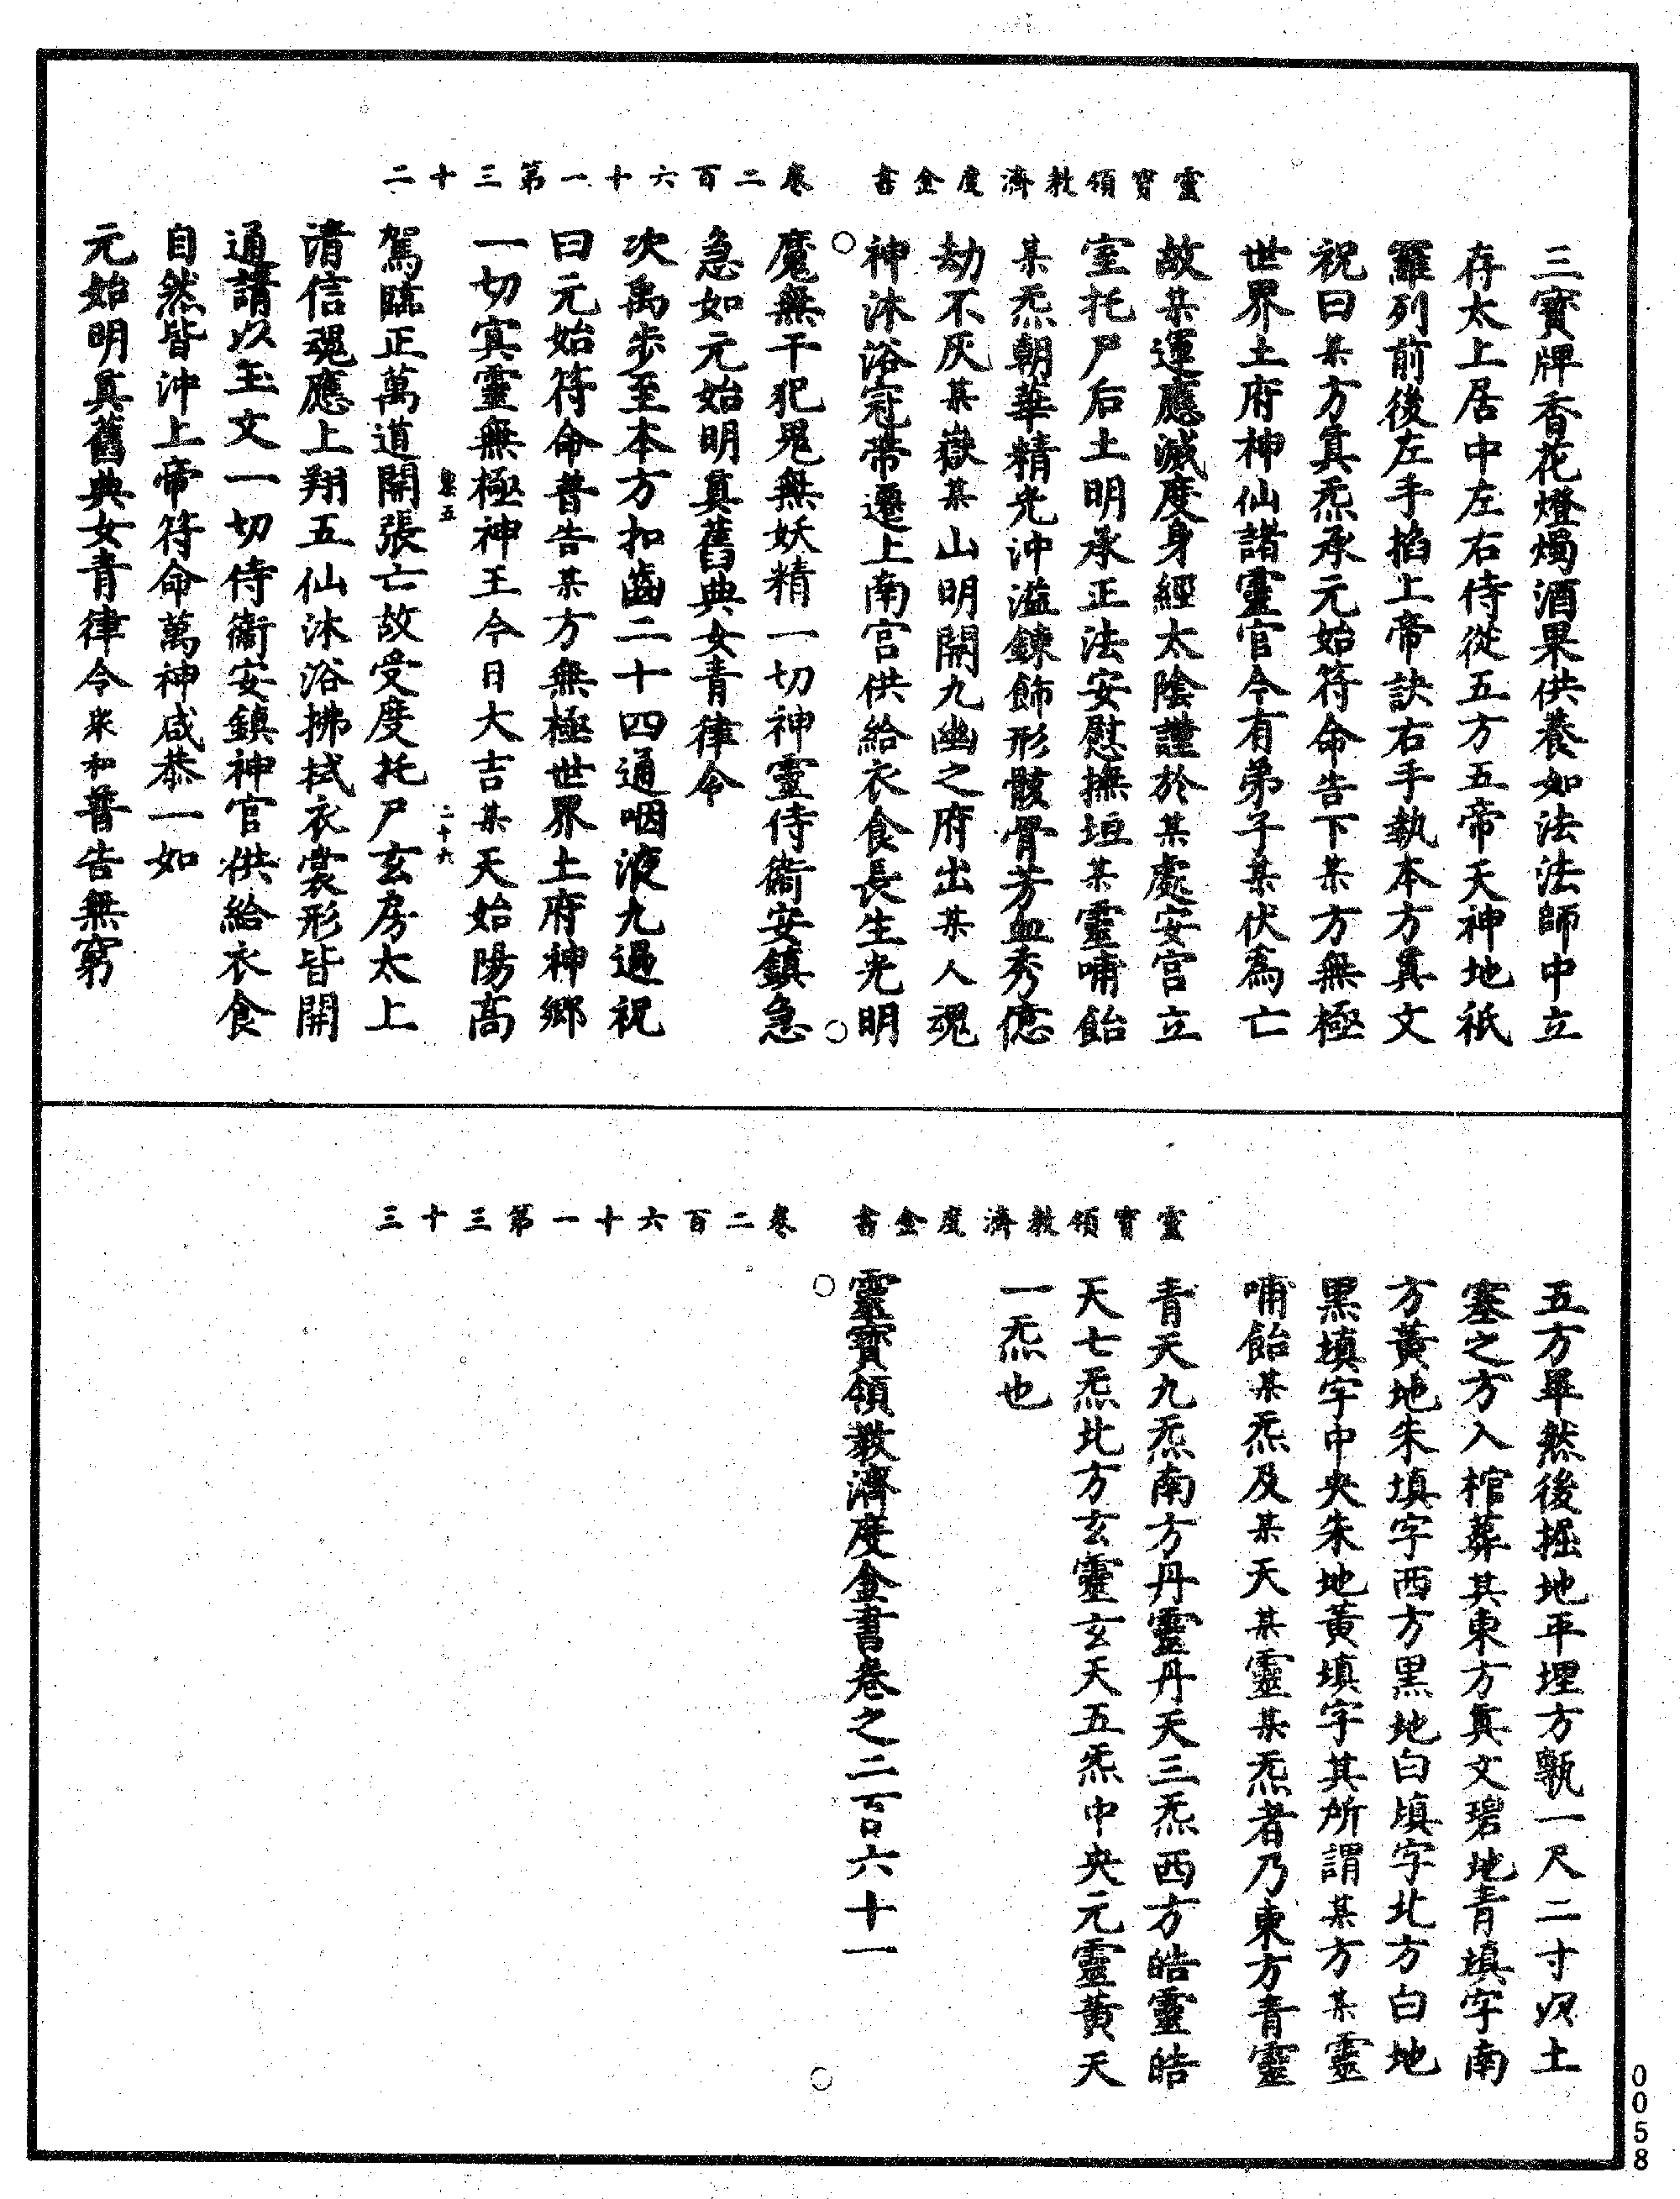 靈寶領教濟度金書　卷二百六十一第三十二
三寶牌香花燈燭酒果供養如法法師中立
存太上居中左右侍從五方五帝天神地祇
羅列前後左手掐上帝訣右手執本方真文
祝曰某方真炁承元始符命告下某方無極
世界土府神仙諸靈官今有弟子某伏爲亡
故某運應滅度身經太陰謹於某處安宮立
室托尸后土明承正法安慰撫垣某靈哺飴
某炁朝華精光沖溢鍊飾形骸骨芳血秀億
劫不灰某嶽某山明開九幽之府出某人魂
神沐浴冠帶遷上南宮供給衣食長生光明
魔無干犯鬼無妖精一切神靈侍衛安鎮急
急如元始明真舊典女青律令
次禹步至本方扣齒二十四通咽液九過祝
曰元始符命普告某方無極世界土府神鄉
一切冥靈無極神王今日大吉某天始陽高
二十六
駕臨正萬道開張亡故受度托尸玄房太上
清信魂應上翔五仙沐浴拂拭衣裳形皆開
通請以玉文一切侍衛安鎮神官供給衣食
自然皆沖上帝符命萬神咸恭一如
元始明真舊典女青律令衆和普告無窮
靈寶領教濟度金書　卷二百六十一第三十三
五方畢然後掘地平埋方塼一尺二寸以土
塞之方入棺葬其東方真文碧地青填字南
方黃地朱填字西方黑地白填字北方白地
黑填字中央朱地黃填字其所謂某方某靈
哺飴某炁及某天某靈某炁者乃東方青靈
青天九炁南方丹靈丹天三炁西方皓靈皓
天七炁北方玄靈玄天五炁中央元靈黃天
一炁也
靈寶領教濟度金書卷之二百六十一
0058